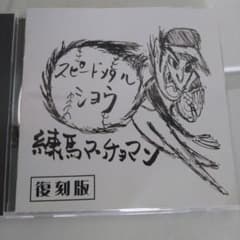 スピードメタル
ショウ
練馬マッチョマン
復刻版